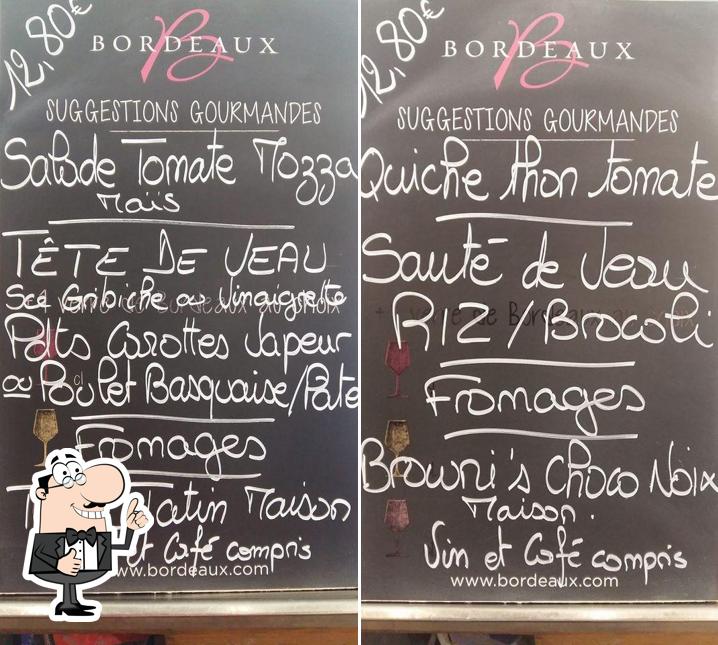 12,80€
BORDEAUX
SUGGESTIONS GOURMANDES
Salade Tomate Mozza
Maïs
TÊTE DE VEAU
Sce Gribiche ou Vinaigrette
+ verre de Bordeaux au choix
Pdts Carottes Vapeur
ou Poulet Basquaise/Pate
Fromages
Tatin Maison
et Café compris
www.bordeaux.com
12,80€
BORDEAUX
SUGGESTIONS GOURMANDES
Quiche thon tomate
Sauté de Veau
+ verre de Bordeaux au choix
RIZ/Brocoli
Fromages
Browni's Choco Noix
Maison.
Vin et Café compris
www.bordeaux.com